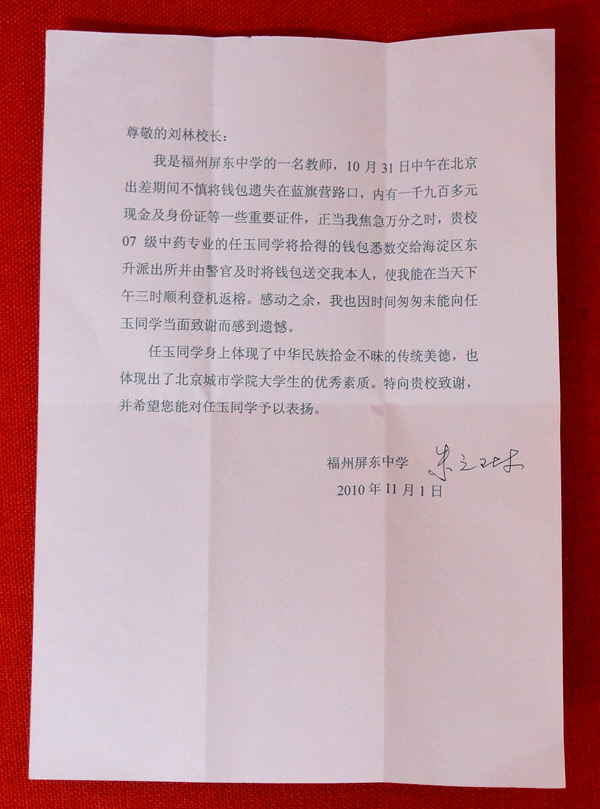 尊敬的刘林校长：
我是福州屏东中学的一名教师，10月31日中午在北京
出差期间不慎将钱包遗失在蓝旗营路口，内有一千九百多元
现金及身份证等一些重要证件，正当我焦急万分之时，贵校
07级中药专业的任玉同学将拾得的钱包悉数交给海淀区东
升派出所并由警官及时将钱包送交我本人，使我能在当天下
午三时顺利登机返榕。感动之余，我也因时间匆匆未能向任
玉同学当面致谢而感到遗憾。
任玉同学身上体现了中华民族拾金不昧的传统美德，也
体现出了北京城市学院大学生的优秀素质。特向贵校致谢，
并希望您能对任玉同学予以表扬。
福州屏东中学
2010年11月1日